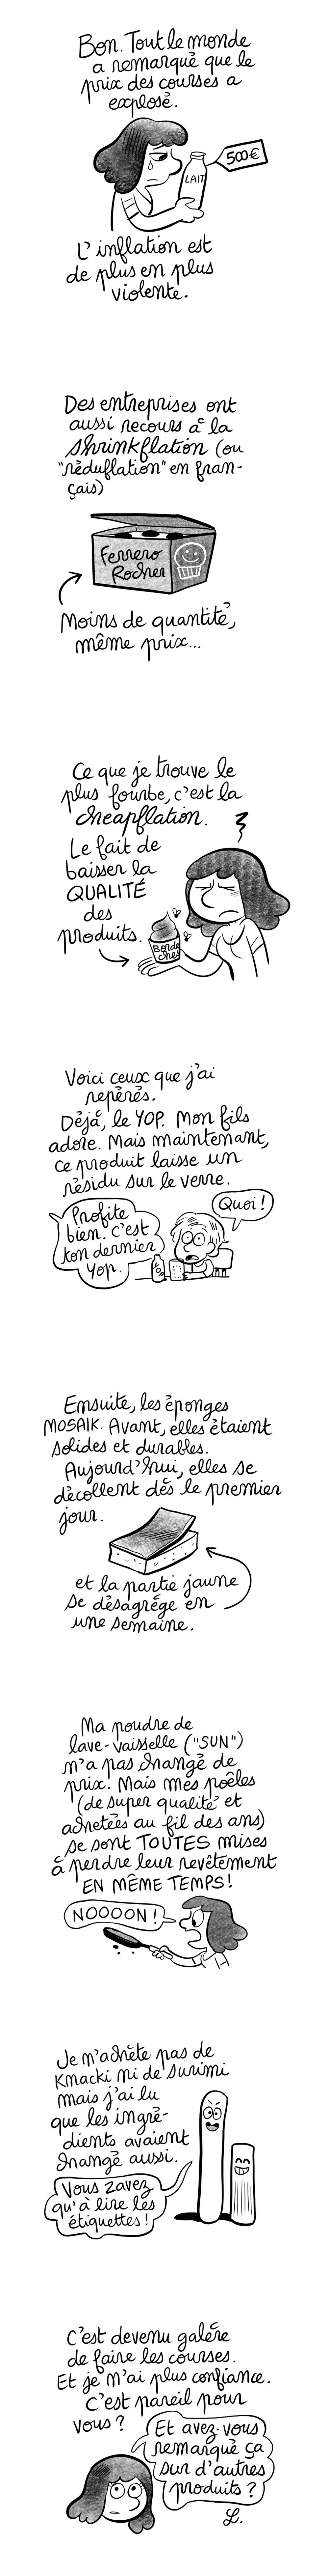 Bon. Tout le monde
a remarqué que le
prix des courses a
explosé.
500€
LAIT
L'inflation est
de plus en plus
violente.
Des entreprises ont
aussi recours à la
shrinkflation (ou
"réduflation" en fran-
çais)
Ferrero
Rocher
Moins de quantité,
même prix...
Ce que je trouve le
plus fourbe, c'est la
cheapflation.
Le fait de
baisser la
QUALITÉ
des
produits.
Borde
Ches
Voici ceux que j'ai
repérés.
Déjà, le YOP. Mon fils
adore. Mais maintenant,
ce produit laisse un
résidu sur le verre.
Quoi !
Profite
bien. C'est
ton dernier
Yop.
Ensuite, les éponges
MOSAIK. Avant, elles étaient
solides et durables.
Aujourd'hui, elles se
décollent dès le premier
jour.
et la partie jaune
se désagrège en
une semaine.
Ma poudre de
lave-vaisselle ("SUN")
n'a pas changé de
prix. Mais mes poêles
(de super qualité et
achetées au fil des ans)
se sont TOUTES mises
à perdre leur revêtement
EN MÊME TEMPS !
NOOOON !
Je n'achète pas de
Knacki ni de surimi
mais j'ai lu
que les ingré-
dients avaient
changé aussi.
Vous zavez
qu'à lire les
étiquettes !
C'est devenu galère
de faire les courses.
Et je n'ai plus confiance.
C'est pareil pour
vous ?
Et avez-vous
remarqué ça
sur d'autres
produits ?
L.